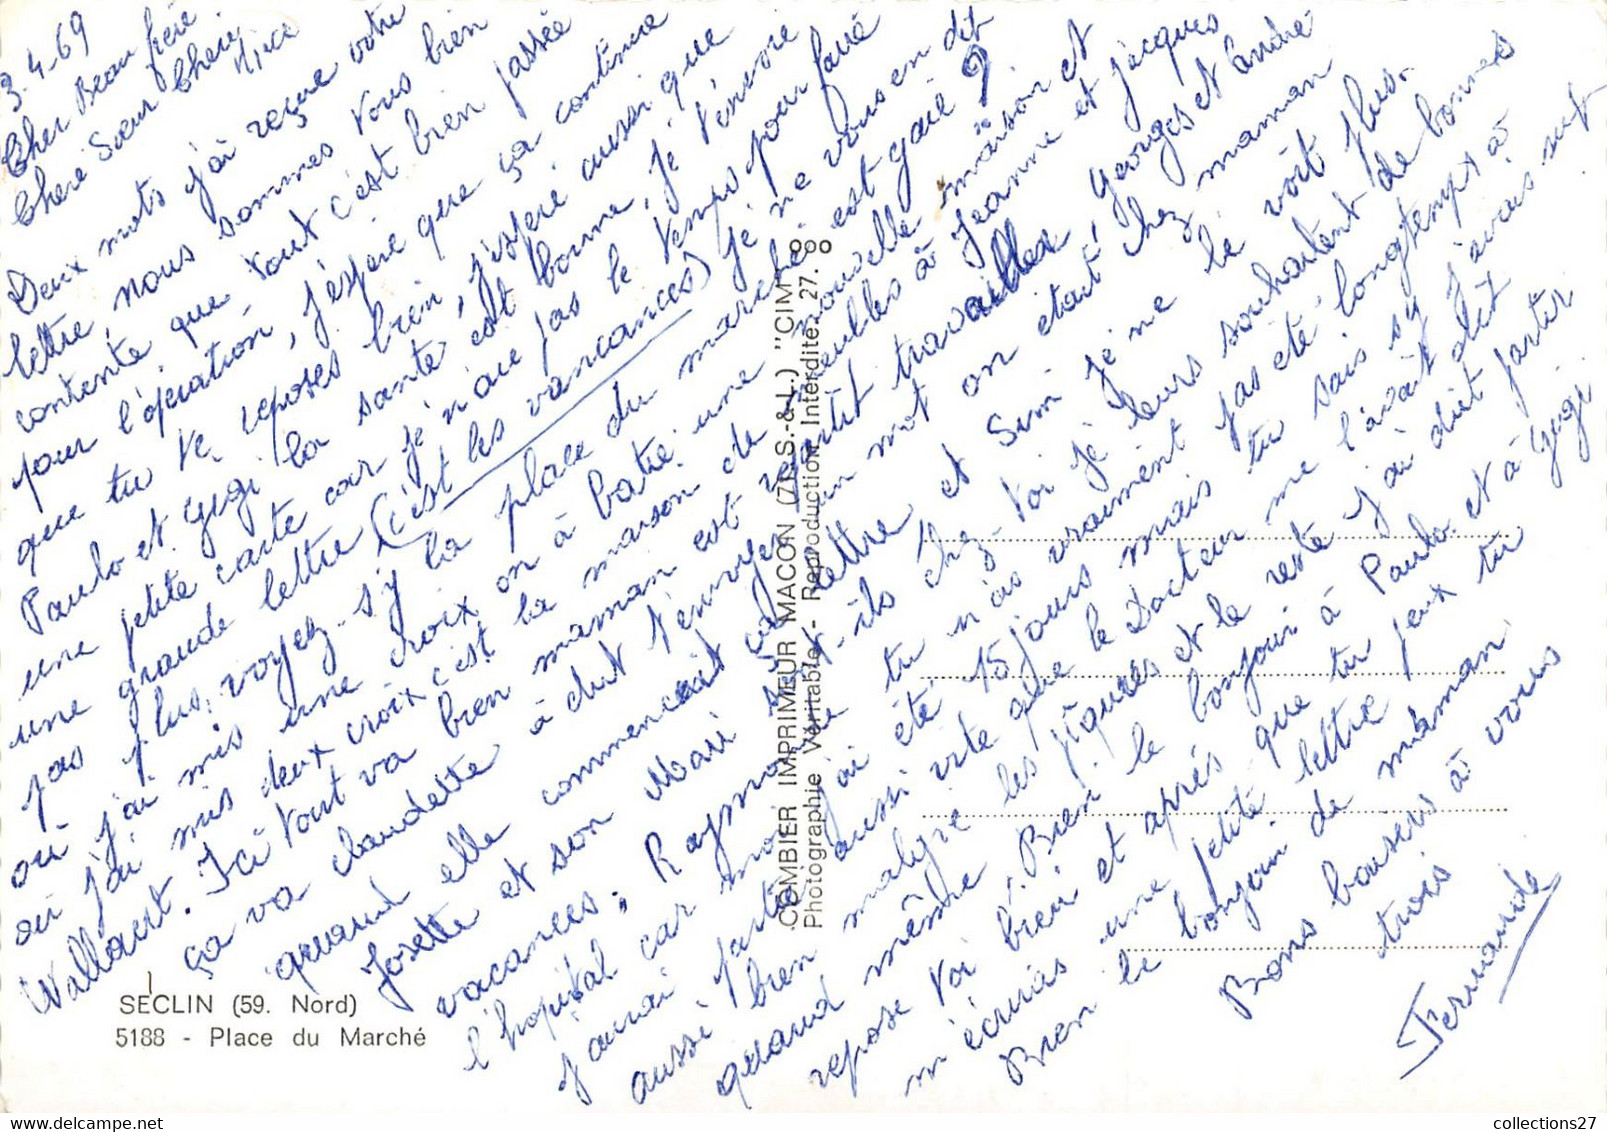 3.4-69
Cher Beau frère
Cheré Sœur Cheri
Nice
Deux mots j'ai reçue votre
lettre, nous sommes tous bien
contente que tout c'est bien passée
pour l'opération, j'espère que ça continue
que tu te reposes bien, j'esperé aussi que
Paulo et Gigi la santé est bonne, je t'envoie
une petite carte car je n'ai pas le temps pour faire
une grande lettre (c'est les vancances) je ne vous en dit
pas plus, voyez-s'y la place du marché est gaie ?
où j'ai mis une croix on à batie une nouvelle maison et
où j'ai mis deux croix c'est la maison de meubles à Jeanne et Jacques
Wallaert. Ici tout va bien maman est repartit travailler, Georges et André
ça va Claudette à dut t'envoyer un mot on était chez maman
quand elle commencait sa lettre et Simi je ne le voit plus.
Josette et son Mari sont-ils chez-toi je leurs souhaitent de bonnes
vacances, Raymonde tu n'as vraiment pas été longtemps à
l'hopital car moi j'ai été 15 jours mais tu sais sy j'avais sut
j'aurai partie aussi vite que le Docteur me l'avait dit
aussi bien malgre les piqures et le reste j'ai dut partir
quand même. Bien le bonjour à Paulo et à Gigi
repose toi bien et après que tu peux tu
m'écriras une petite lettre
Bien le bonjour de maman
Bons baisers à vous
trois
Fernande
SECLIN (59. Nord)
5188 - Place du Marché
COMBIER IMPRIMEUR MACON (71 S.-&-L.) "CIM"
Photographie Véritable - Reproduction Interdite 27.
collections27